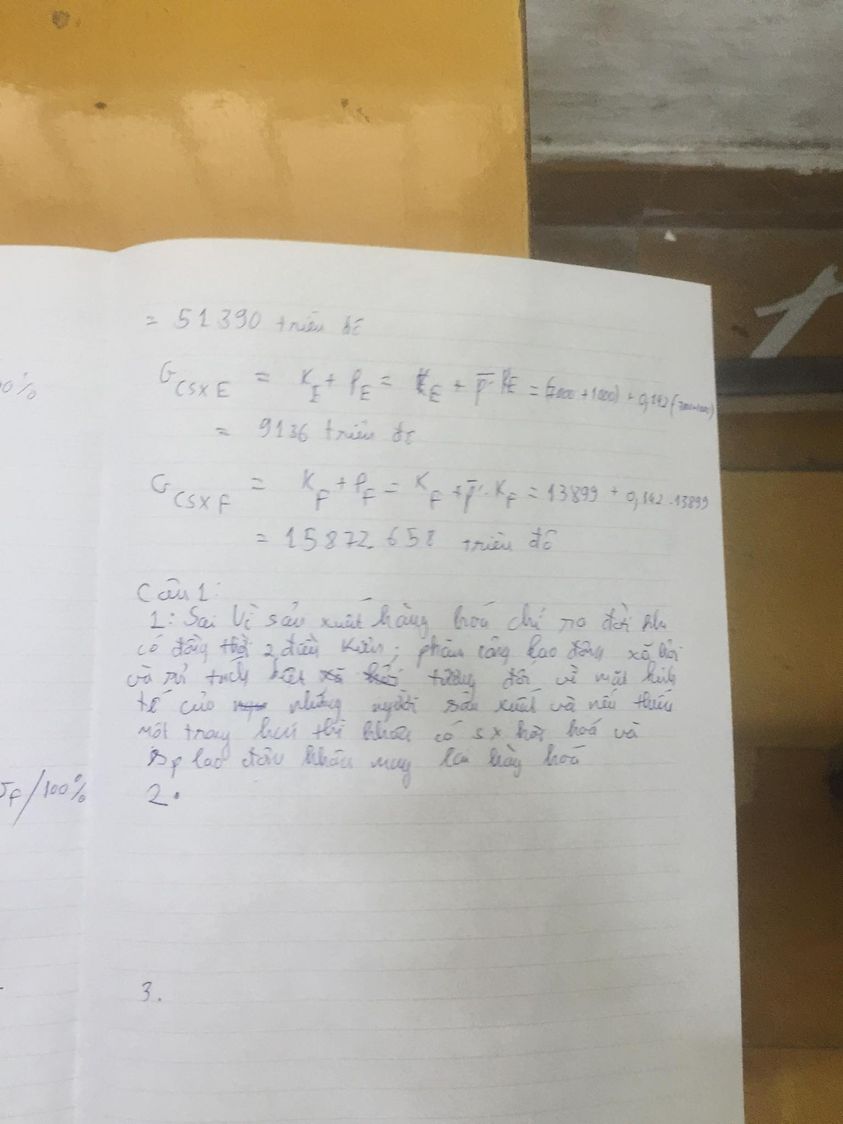 = 51390 triệu đô
00%
G CSX E = K_E + P_E = K_E + p̄'.K_E = (7000 + 1000) + 0,142 (7000+1000)
= 9136 triệu đô
G CSX F = K_F + P_F = K_F + p̄'.K_F = 13899 + 0,142.13899
= 15872.658 triệu đô
Câu 1:
1: Sai Vì sản xuất hàng hoá chỉ ra đời khi
có đồng thời 2 điều kiện; phân công lao động xã hội
và sự tách biệt tương đối về mặt kinh
tế của những người sản xuất và nếu thiếu
một trong hai thì không có sx hàng hoá và
sp lao động không mang hàng hoá
F/100%
2.
3.